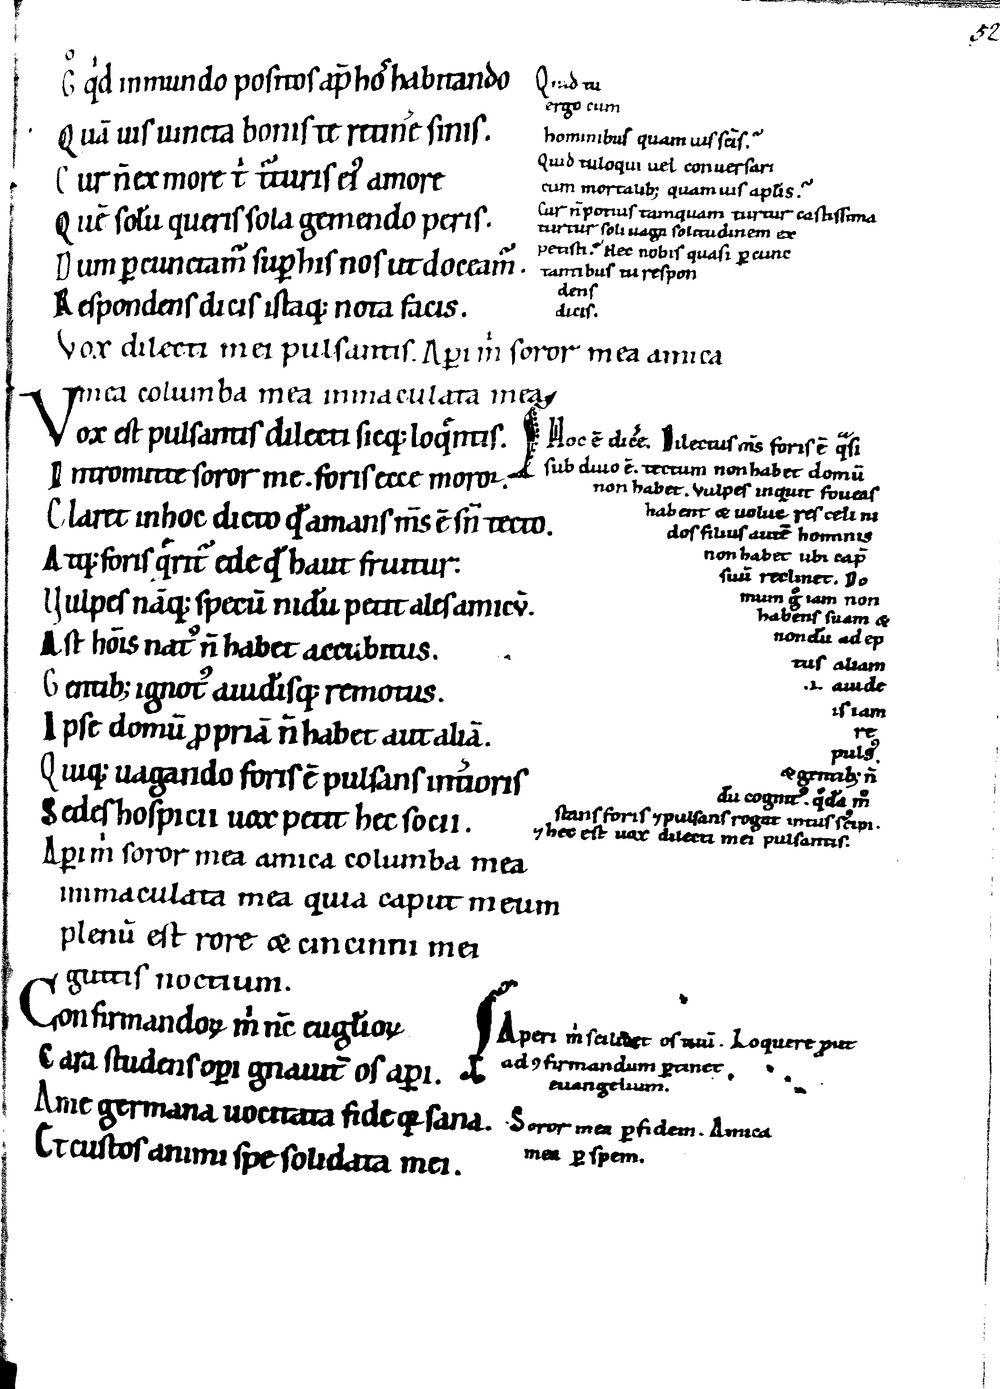 52
G͛ qͥd inmundo positos ap̄ hōs habitando
Quā uis uincta bonis te retinc̄e sinis.
Cur n̄ ex more tͥ turturis eiꝰ amore
Quē solū queris sola gemendo peris.
Dum ꝑcunctamͬ suꝑ his nos ut doceamͬ.
Respondens dicis istaqꝫ nota facis.
Vox dilecti mei pulsantis. Aꝑi mͥ soror mea amica
mea columba mea inmaculata mea
Vox est pulsantis dilecti sicqꝫ loqͣntis.
Intromitte soror me. foris ecce moror.
Claret inhoc dicto qͥ amans m̄s ē sn̄ tecto.
Atqꝫ foris qͥritͬ ede qͥ haut fruitur:
Vulpes nāqꝫ specū nidū petit ales amicū.
Ast hōis natꝰ n̄ habet accubitus.
Gentibꝫ ignotꝰ a iudīsqꝫ remotus.
Ipse domū ꝓpriā n̄ habet aut aliā.
Quiqꝫ uagando foris ē pulsans intͥioris
Sedes hospicii uox petit hec socii.
Aꝑi mͥ soror mea amica columba mea
inmaculata mea quia caput meum
plenū est rore & cincinni mei
guttis noctium.
Confirmandoꝝ mͥ nc̄ eugl̄ioꝝ
Cara studens oꝑi gnauit̄ os aꝑi.
Ame germana uocitata fide qͥ sana.
Et custos animi spe solidata mei.
Quid tu
ergo cum
hominibus quam uis sc̄is.
Quid tu loqui uel conuersari
cum mortalibꝫ quam uis apl̄is.
Cur n̄ potius tamquam turtur castissima
turtur soliuaga solitudinem ex
petisti. Hec nobis quasi ꝑcunc
tantibus tu respon
dens
dicis.
Hoc ē dicē. Dilectus m̄s foris ē qͣsi
sub diuo ē. tectum non habet domū
non habet. Vulpes inquit foueas
habent & uolucres celi ni
dos filius autē hominis
non habet ubi cap̄
suū reclinet. Do
mum gͦ iam non
habens suam &
nondū adep
tus aliam
.i. a iude
is iam
re
pulsꝰ.
& gentibꝫ n̄
dū cognitꝰ. qͦdā mͦ
stans foris ⁊ pulsans rogat intus suscipi.
⁊ hec est uox dilecti mei pulsantis.
Aperi mͥ scilicet os tuū. Loquere ꝓut
ad ꝯfirmandum ꝑtinet
euangelium.
Soror mea ꝑ fidem. Amica
mea ꝑ spem.